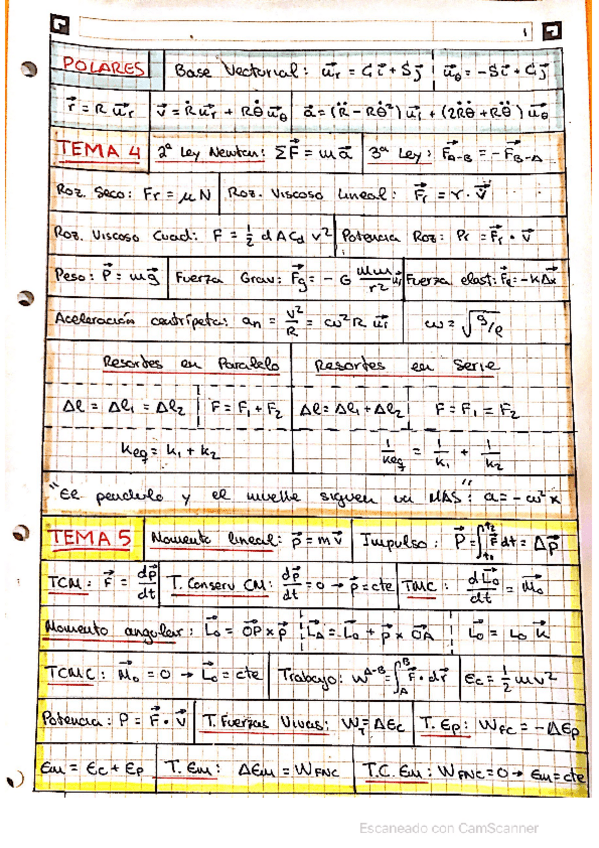 1
POLARES Base Vectorial: u⃗r = Ci⃗ + Sj⃗ u⃗θ = -Si⃗ + Cj⃗
r⃗ = R u⃗r v⃗ = Ṙ u⃗r + Rθ̇ u⃗θ a⃗ = (R̈ - Rθ̇²) u⃗r + (2Ṙθ̇ + Rθ̈) u⃗θ
TEMA 4 2ª Ley Newton: ΣF⃗ = m a⃗ 3ª Ley: F⃗A-B = -F⃗B-A
Roz. Seco: Fr = μ N Roz. Viscoso Lineal: F⃗r = r · V⃗
Roz. Viscoso Cuad: F = 1/2 d A Cd v² Potencia Roz: Pr = F⃗r · v⃗
Peso: P⃗ = m g⃗ Fuerza Grav: F⃗g = - G Mm/r² u⃗r Fuerza elast: F⃗e = -kΔx⃗
Aceleración centrípeta: an = v²/R = ω² R u⃗r ω = √g/l
Resortes en Paralelo Resortes en Serie
Δl = Δl1 = Δl2 F = F1 + F2 Δl = Δl1 + Δl2 F = F1 = F2
Keq = k1 + k2 1/Keq = 1/k1 + 1/k2
"El pendulo y el muelle siguen un MAS": a = -ω² x
TEMA 5 Momento lineal: p⃗ = m v⃗ Impulso: P⃗ = ∫t0^t2 F⃗ dt = Δp⃗
TCM: F⃗ = dp⃗/dt T. Conserv CM: dp⃗/dt = 0 → p⃗ = cte TMC: dL⃗o/dt = M⃗o
Momento angular: L⃗o = OP⃗ × p⃗ L⃗A = L⃗o + p⃗ × OA⃗ L⃗o = Lo k⃗
TCMC: M⃗o = 0 → L⃗o = cte Trabajo: W^A-B = ∫A^B F⃗ · dr⃗ Ec = 1/2 m v²
Potencia: P = F⃗ · v⃗ T. Fuerzas Vivas: WT = ΔEc T. Ep: WFC = -ΔEp
Em = Ec + Ep T. Em: ΔEm = WFNC T.C. Em: WFNC = 0 → Em = cte
Escaneado con CamScanner